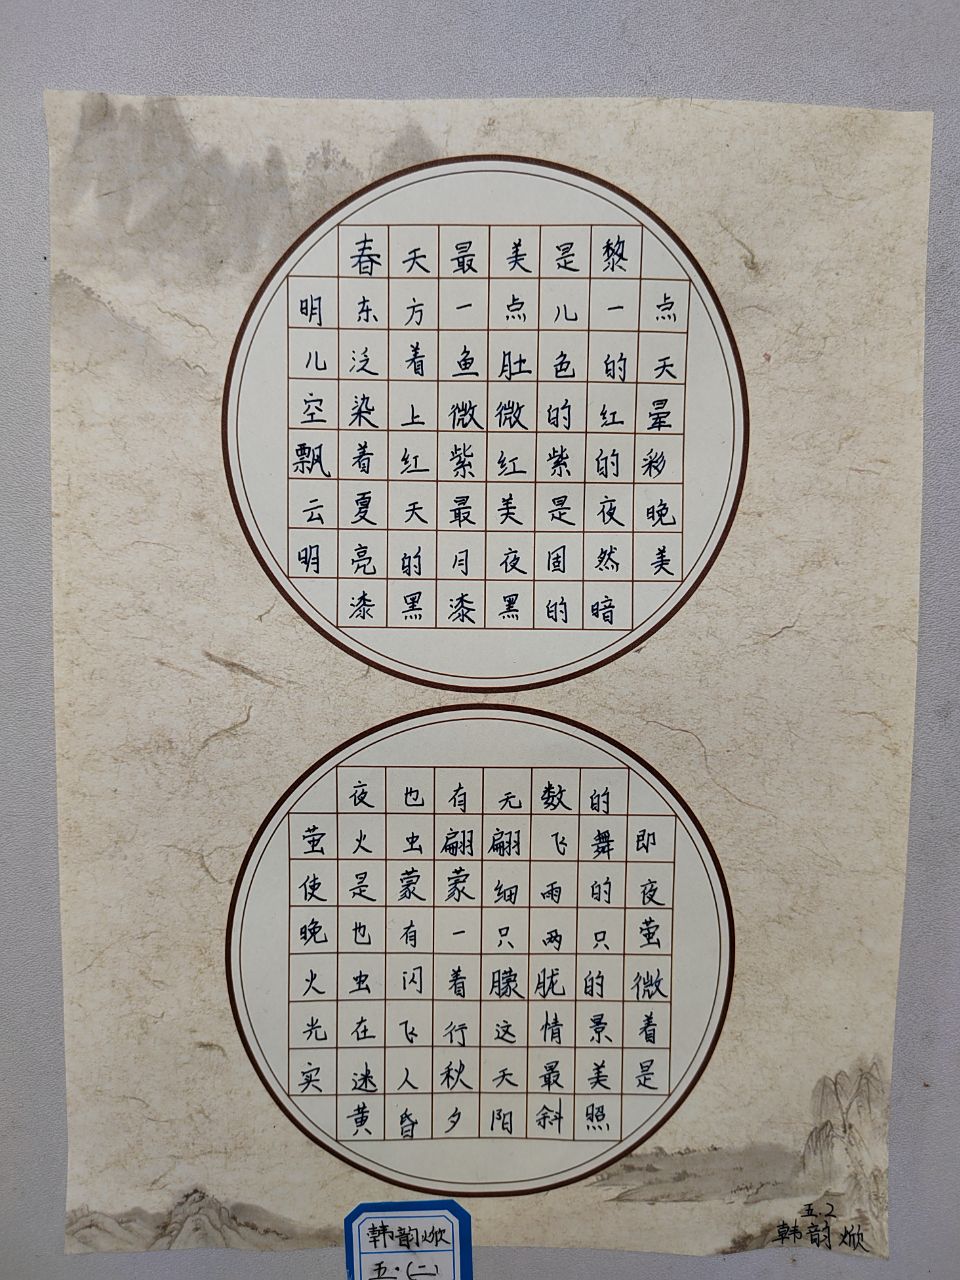 春天最美是黎
明东方一点儿一点
儿泛着鱼肚色的天
空染上微微的红晕
飘着红紫红紫的彩
云夏天最美是夜晚
明亮的月夜固然美
漆黑漆黑的暗
夜也有无数的
萤火虫翩翩飞舞即
使是蒙蒙细雨的夜
晚也有一只两只萤
火虫闪着朦胧的微
光在飞行这情景着
实迷人秋天最美是
黄昏夕阳斜照
五.2
韩韵焮
韩韵焮
五.(二)